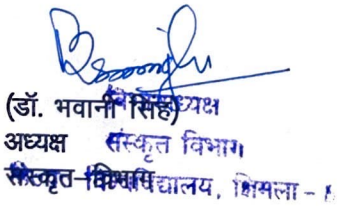 (डॉ. भवानी सिंह)
अध्यक्ष
अध्यक्ष संस्कृत विभाग
संस्कृत विभाग
विद्यालय, शिमला -